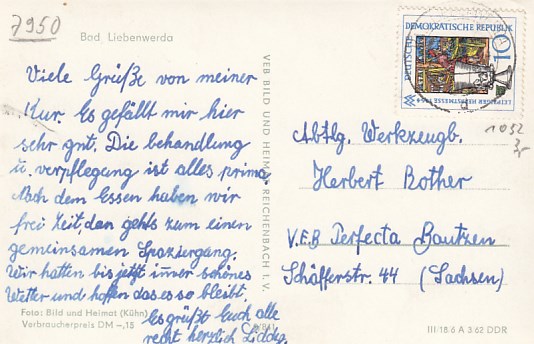 7950
Bad Liebenwerda
Viele Grüße von meiner
Kur. Es gefällt mir hier
sehr gut. Die behandlung
u. verpflegung ist alles prima
Nach dem Essen haben wir
frei Zeit, dan gehts zum einen
gemeinsamen Spaziergang.
Wir hatten bis jetzt imer schönes
Wetter und hoffen das es so bleibt.
Es grüßt Euch alle
recht herzlich
Foto: Bild und Heimat (Kühn)
Verbraucherpreis DM -,15
VEB BILD UND HEIMAT REICHENBACH I. V.
DEUTSCHE DEMOKRATISCHE REPUBLIK
10
LEIPZIGER HERBSTMESSE 1964
1032
Abtlg. Werkzeugb.
Herbert Bother
V.E.B Perfecta Bautzen
Schäfferstr. 44 (Sachsen)
III/18/6 A 3/62 DDR